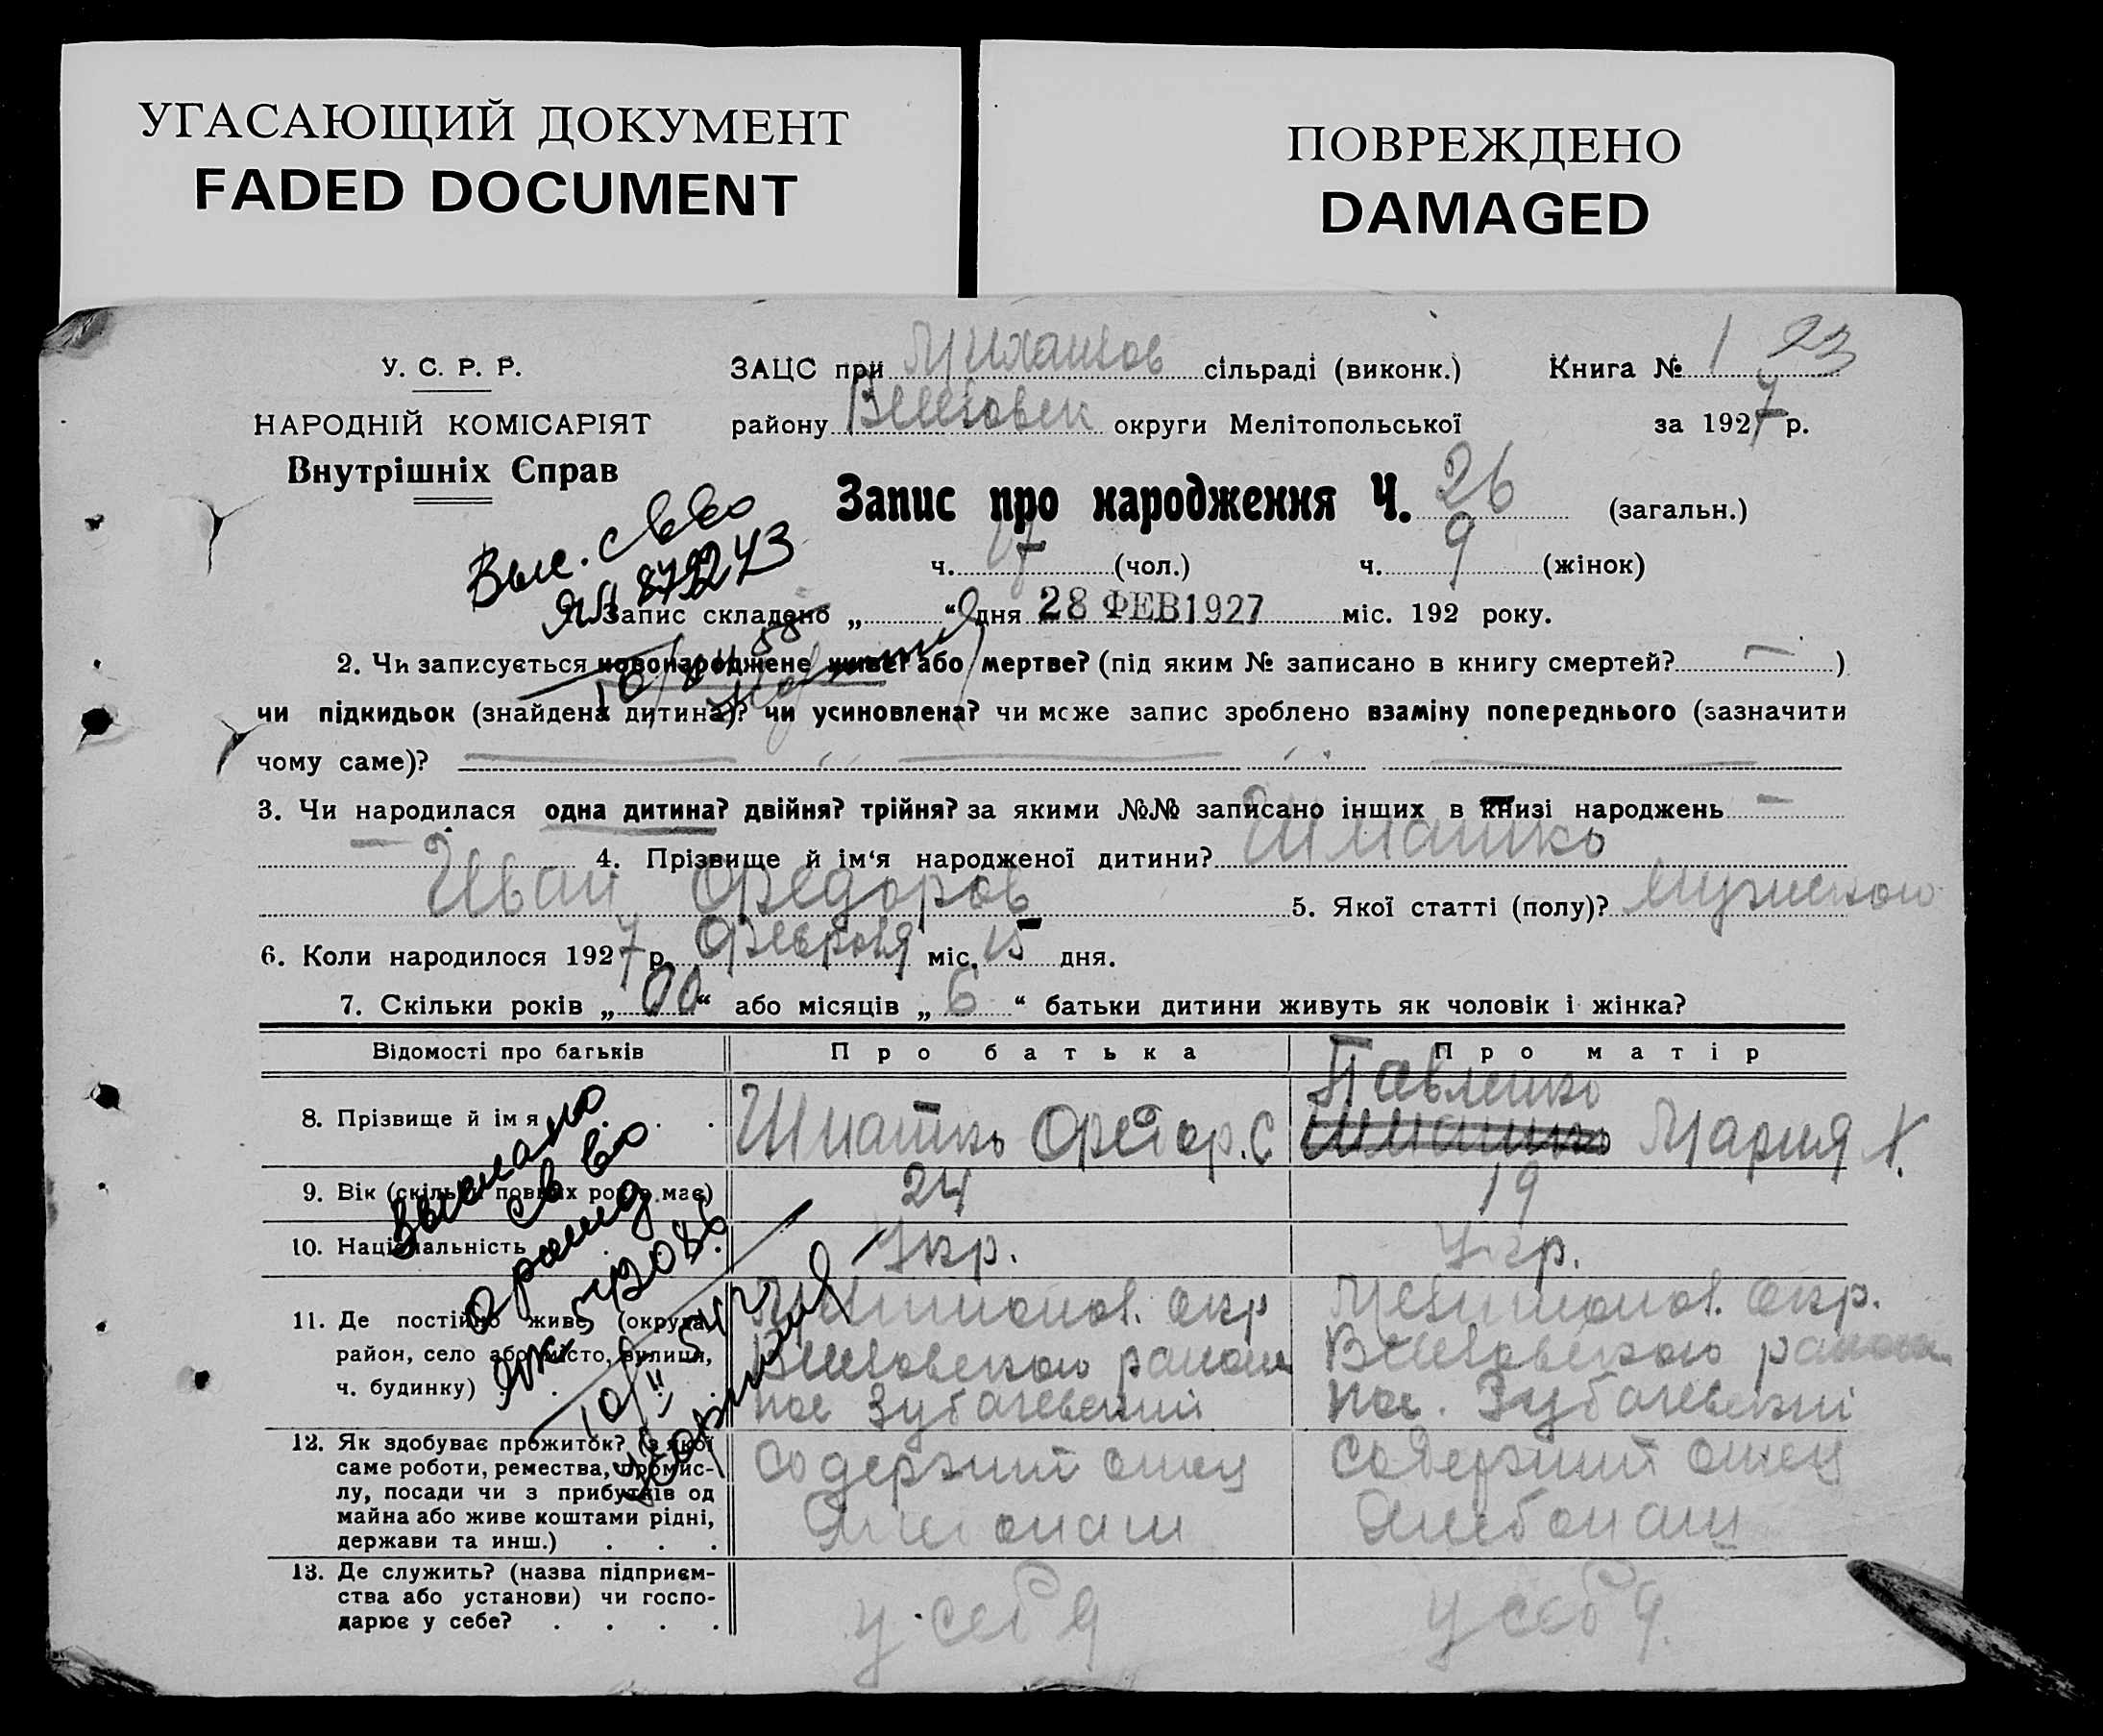 УГАСАЮЩИЙ ДОКУМЕНТ
FADED DOCUMENT
ПОВРЕЖДЕНО
DAMAGED
У. С. Р. Р.
НАРОДНІЙ КОМІСАРІЯТ
Внутрішніх Справ
ЗАЦС при Михайлов сільраді (виконк.) Книга № 1 23
району Веселовск округи Мелітопольської за 1927 р.
Запис про народження Ч. 26 (загальн.)
ч. 17 (чол.) ч. 9 (жінок)
Выс. св во
ЯП
1. Запис складено „ “ дня 28 ФЕВ 1927 міс. 192 року.
2. Чи записується новонароджене живе? або мертве? (під яким № записано в книгу смертей? — )
чи підкидьок (знайдена дитина)? чи усиновлена? чи може запис зроблено взаміну попереднього (зазначити
чому саме)?
3. Чи народилася одна дитина? двійня? трійня? за якими №№ записано інших в книзі народжень —
— 4. Прізвище й ім‘я народженої дитини? Шматко
Иван Федоров 5. Якої статті (полу)? мужского
6. Коли народилося 1927 р. Февраля міс. 15 дня.
7. Скільки років „ 00 “ або місяців „ 6 “ батьки дитини живуть як чоловік і жінка?
Відомості про батьків Про батька Про матір
Павленко
8. Прізвище й ім я . . . Шматко Федор. С Шматко Мария
9. Вік (скільки повних років має) 24 19
10. Національність Укр. Укр.
11. Де постійно живе (округа, Мелитопол. окр Мелитопол. окр.
район, село або місто, вулиця, Веселовского района Веселовского района
ч. будинку) . . . пос Зубачевский пос. Зубачевский
12. Як здобуває прожиток? (з якої содержит отец содержит отец
саме роботи, ремества, промис-
лу, посади чи з прибутків од
майна або живе коштами рідні,
держави та инш.) . . .
13. Де служить? (назва підприєм-
ства або установи) чи госпо- у себя у себя
дарює у себе? . . . .
Выслано
св во